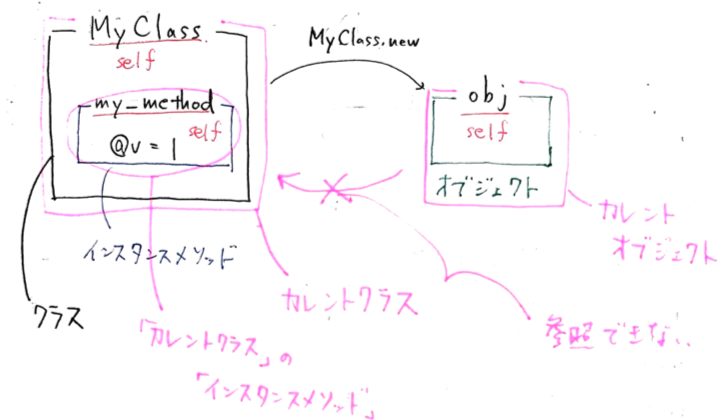 MyClass
self
MyClass.new
my_method
self
@v = 1
obj
self
オブジェクト
カレント
オブジェクト
インスタンスメソッド
クラス
カレントクラス
参照できない
「カレントクラス」の
「インスタンスメソッド」